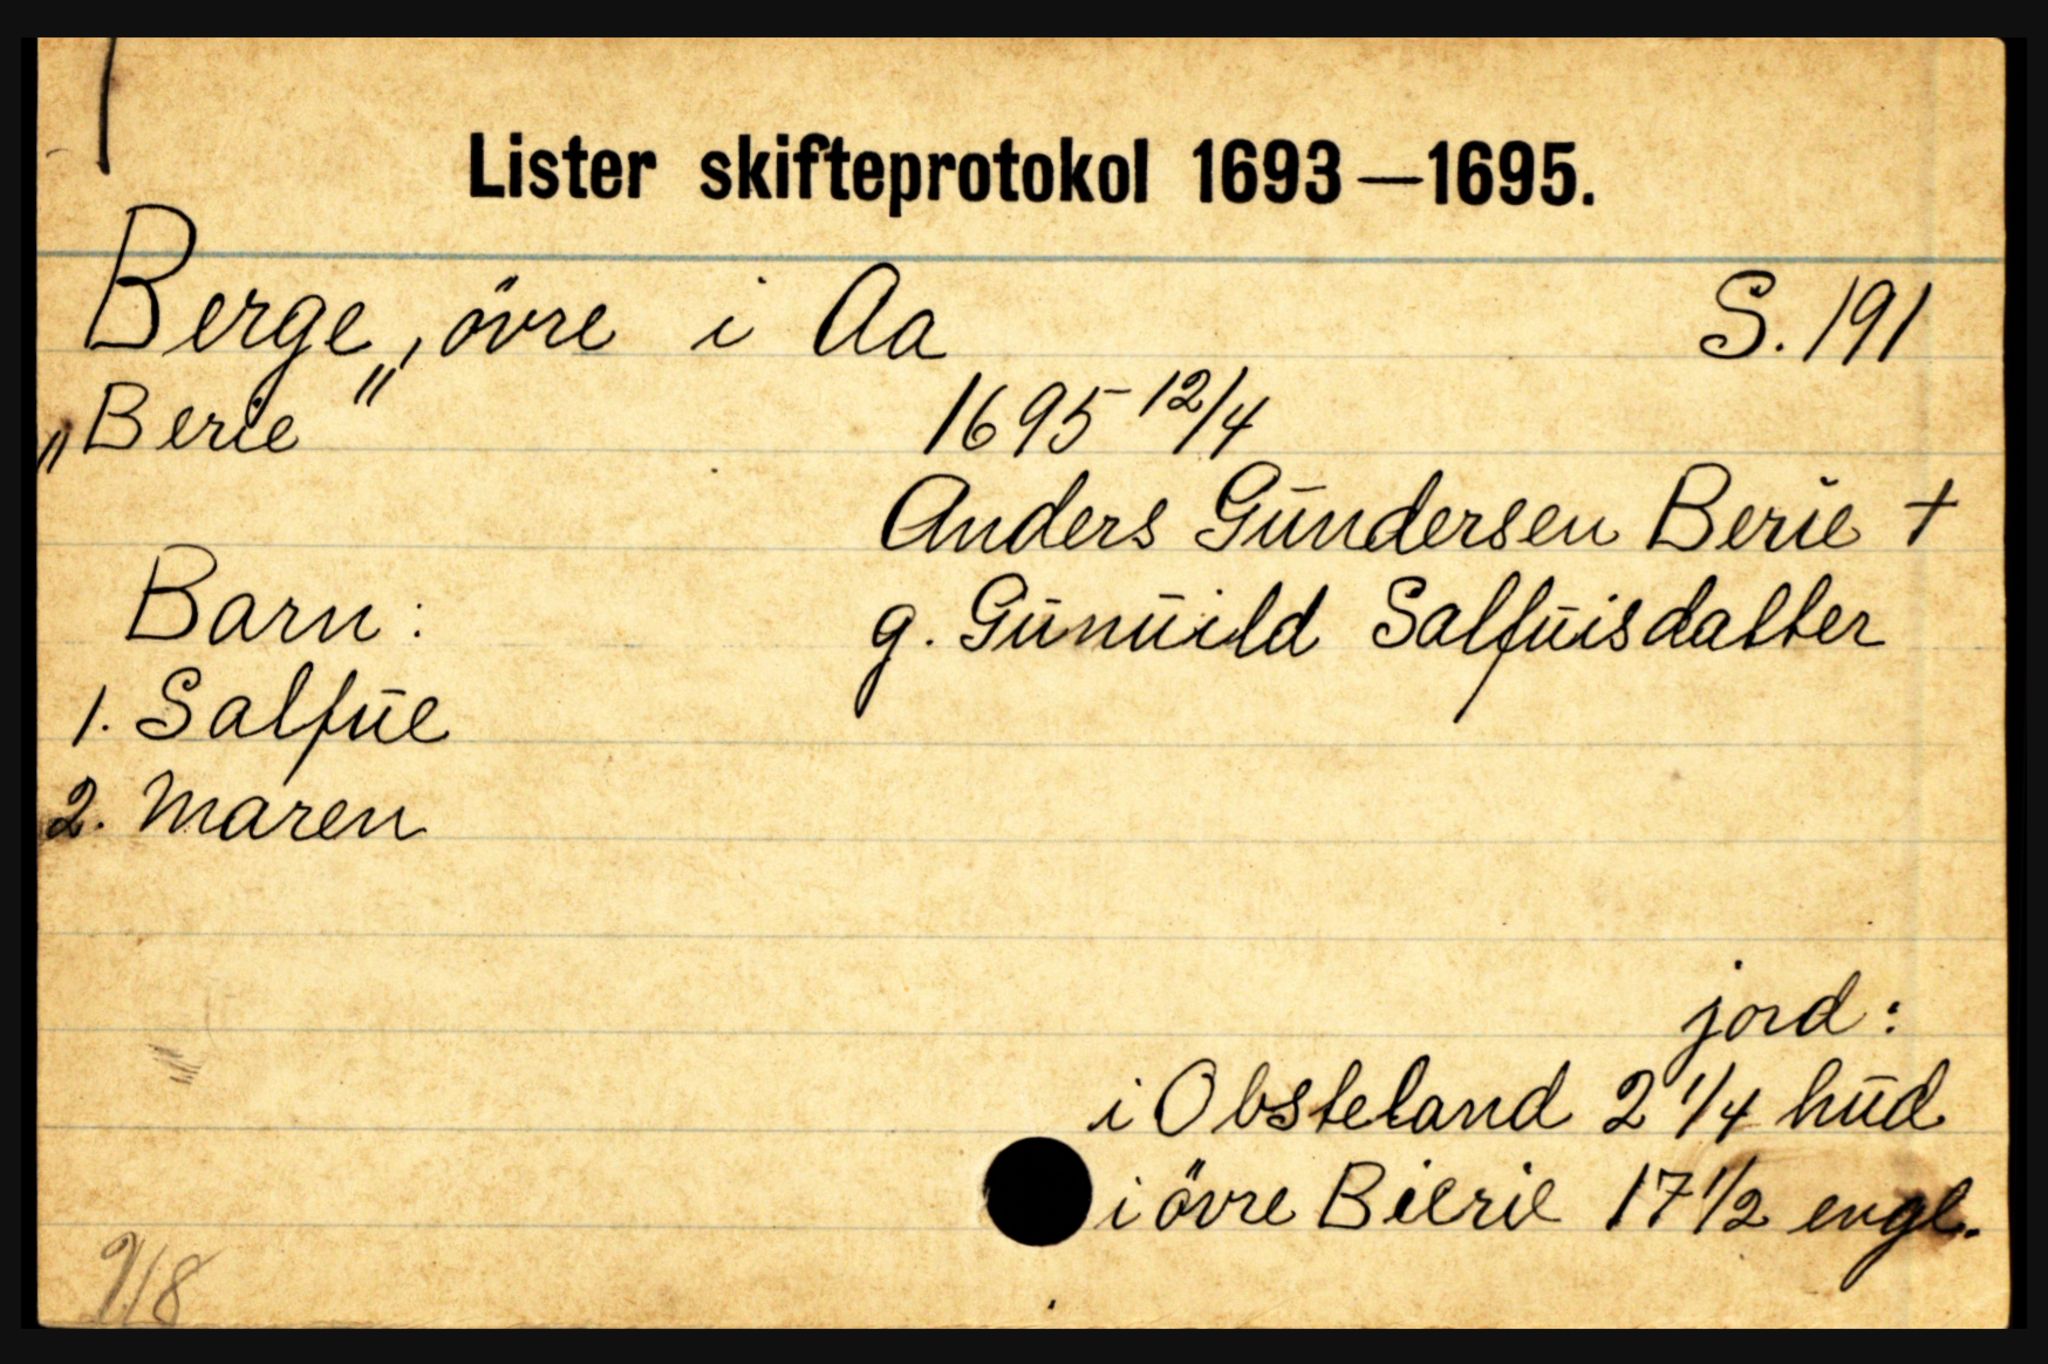 Lister skifteprotokol 1693—1695.
Berge, övre i Aa S. 191
„Berie" 1695 12/4
Anders Gundersen Berie +
Barn: g. Gunuild Salfuisdatter
1. Salfue
2. Maren
jord:
i Obsteland 2 1/4 hud
i övre Bierie 17 1/2 engl.